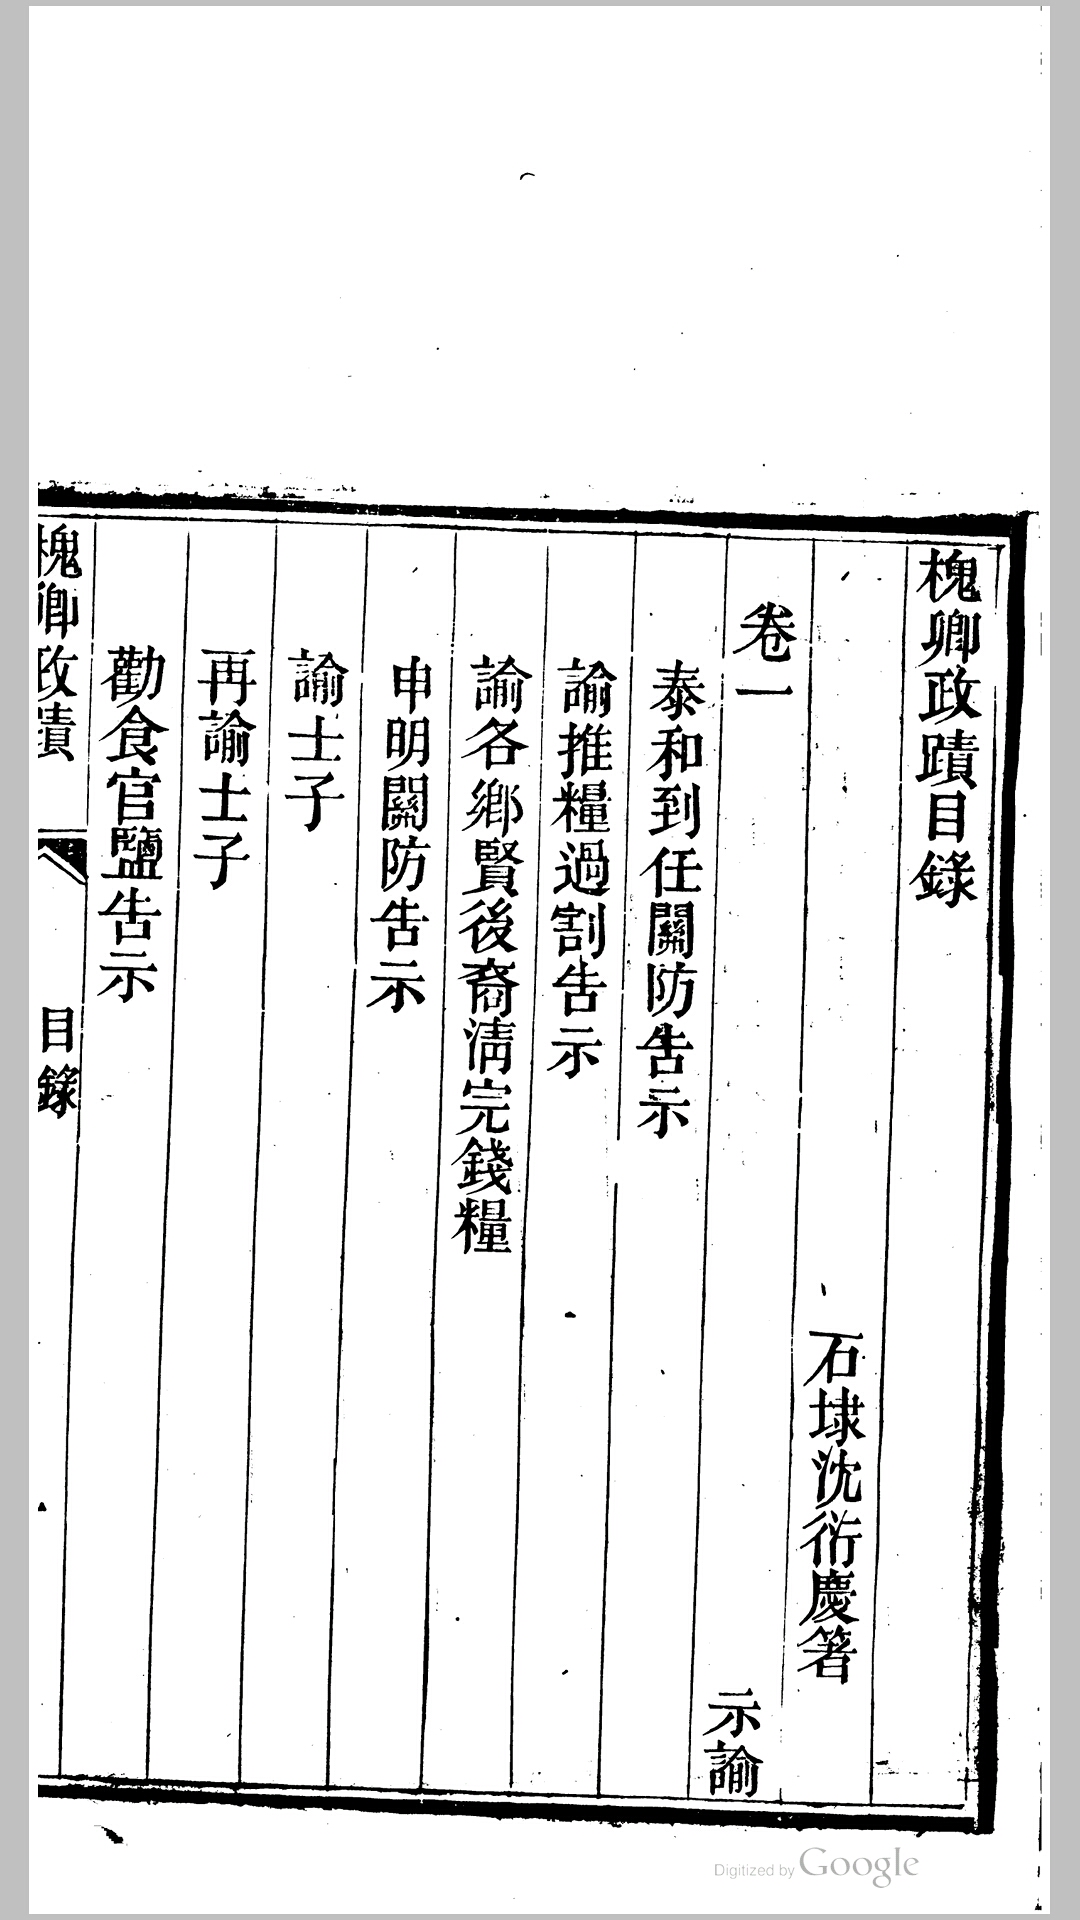 槐卿政蹟目錄
石埭沈衍慶箸
卷一
示諭
泰和到任關防告示
諭推糧過割告示
諭各鄉賢後裔淸完錢糧
申明關防告示
諭士子
再諭士子
勸食官鹽告示
槐卿政蹟
目錄
Digitized by Google